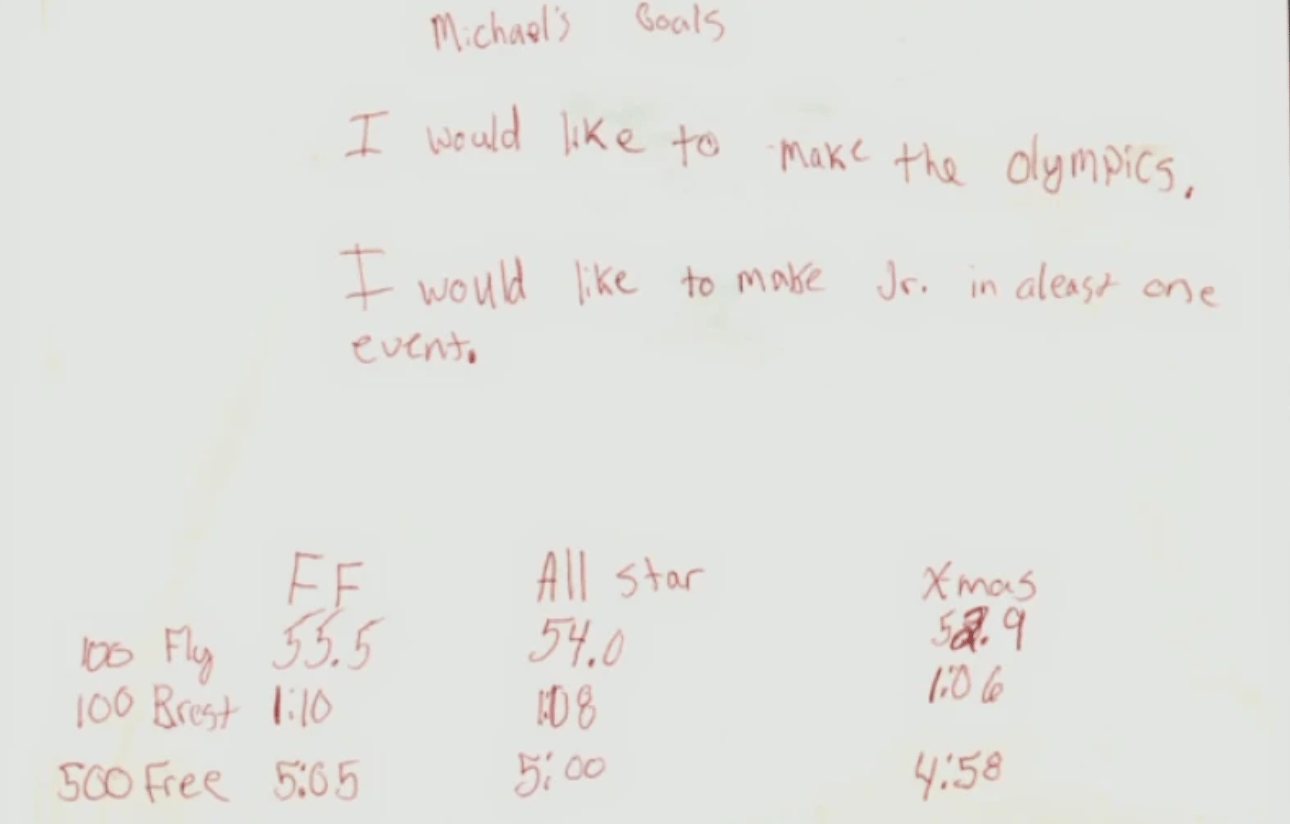 Michael's Goals
I would like to make the olympics.
I would like to make Jr. in aleast one
event.
FF All star Xmas
100 Fly 55.5 54.0 52.9
100 Brest 1:10 1:08 1:06
500 Free 5:05 5:00 4:58